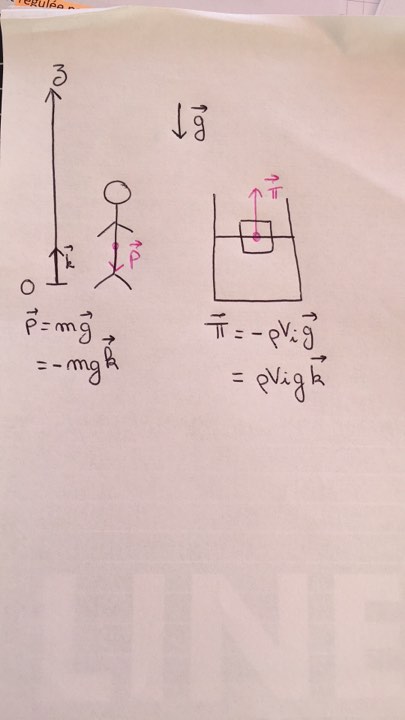 régulée
z
g⃗
k⃗
O
P⃗
π⃗
P⃗ = mg⃗
= -mgk⃗
π⃗ = -ρVig⃗
= ρVigk⃗
LINE